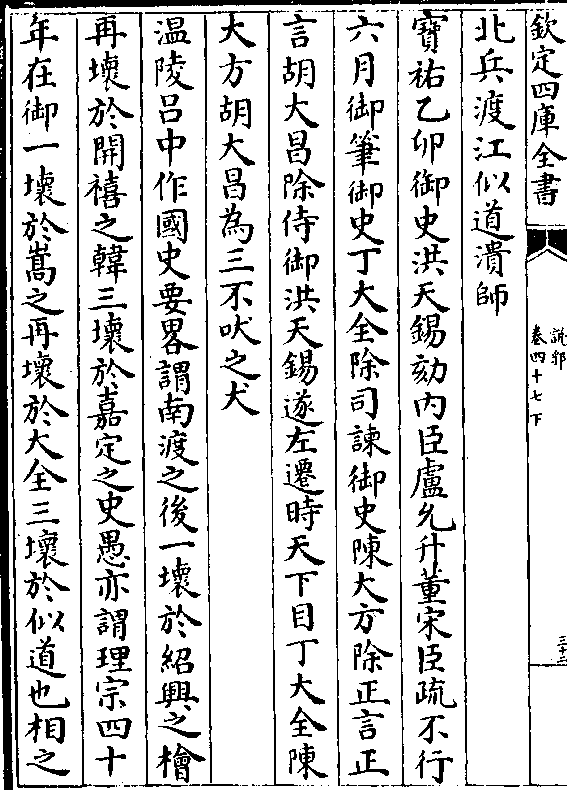 欽定四庫全書
說郛
卷四十七下
三十三
北兵渡江似道潰師
寶祐乙卯御史洪天錫劾内臣盧允升董宋臣疏不行
六月御筆御史丁大全除司諫御史陳大方除正言正
言胡大昌除侍御洪天錫遂左遷時天下目丁大全陳
大方胡大昌為三不吠之犬
温陵吕中作國史要畧謂南渡之後一壞於紹興之檜
再壞於開禧之韓三壞於嘉定之史愚亦謂理宗四十
年在御一壞於嵩之再壞於大全三壞於似道也相之